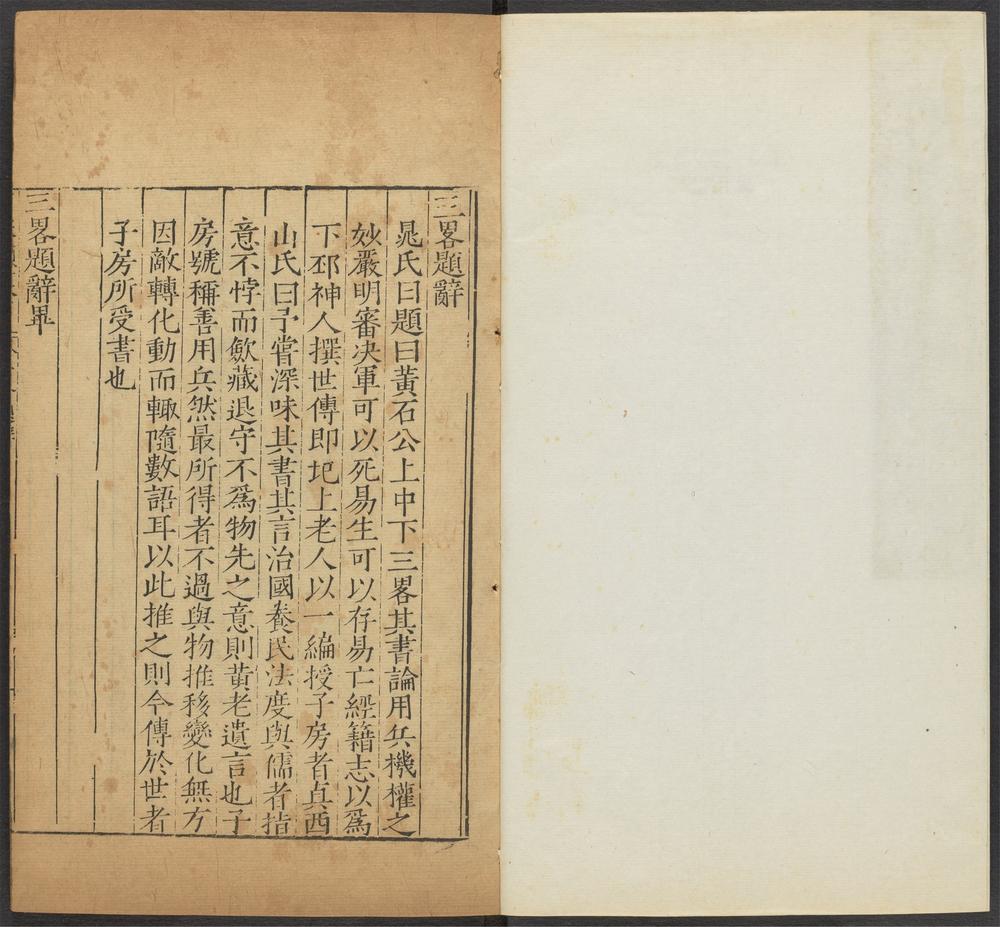 三畧題辭
晁氏曰題曰黃石公上中下三畧其書論用兵機權之
妙嚴明審决軍可以死易生可以存易亡經籍志以爲
下邳神人撰世傳即圯上老人以一編授子房者真西
山氏曰予嘗深味其書其言治國養民法度與儒者指
意不悖而歛藏退守不爲物先之意則黃老遺言也子
房號稱善用兵然最所得者不過與物推移變化無方
因敵轉化動而輙隨數語耳以此推之則今傳於世者
子房所受書也
三畧題辭畢